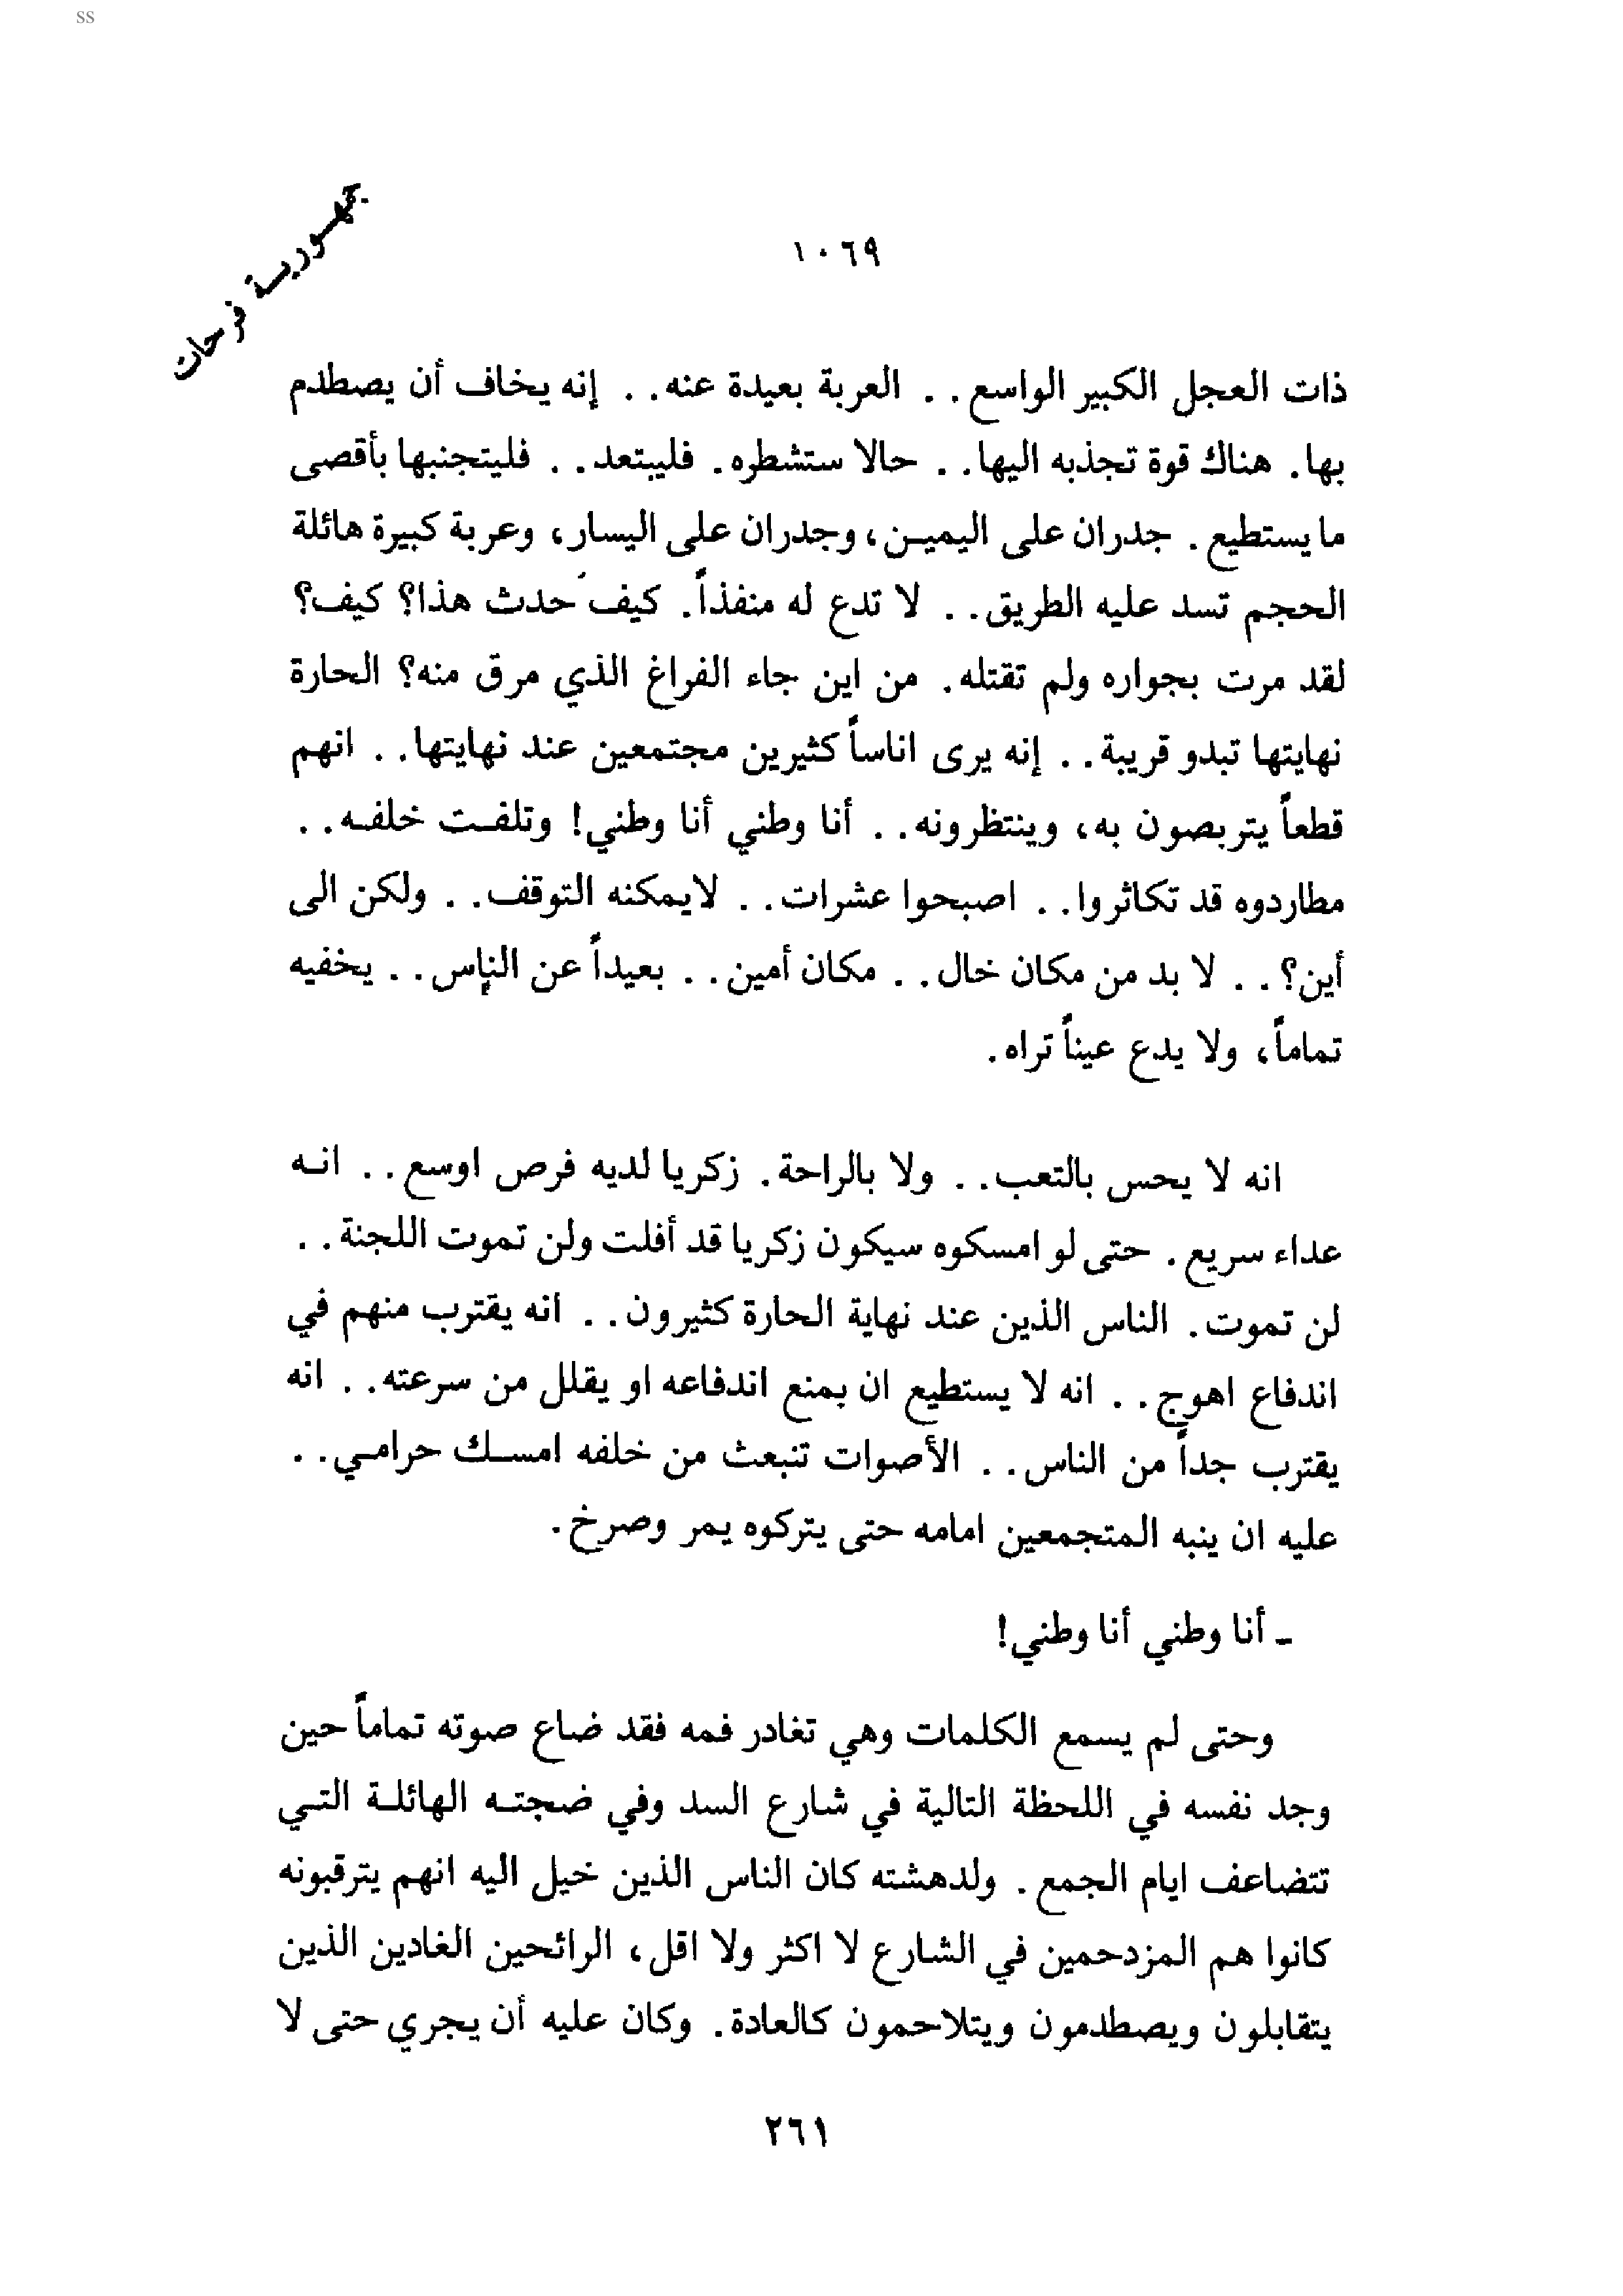 ss
جمهورية فرحات
١٠٦٩
ذات العجل الكبير الواسع . . العربة بعيدة عنه . . إنه يخاف أن يصطدم
بها . هناك قوة تجذبه اليها . . حالا ستشطره . فليبتعد . . فليتجنبها بأقصى
ما يستطيع . جدران على اليمين ، وجدران على اليسار ، وعربة كبيرة هائلة
الحجم تسد عليه الطريق . . لا تدع له منفذاً . كيف حدث هذا ؟ كيف ؟
لقد مرت بجواره ولم تقتله . من اين جاء الفراغ الذي مرق منه ؟ الحارة
نهايتها تبدو قريبة . . إنه يرى اناساً كثيرين مجتمعين عند نهايتها . . انهم
قطعاً يتربصون به ، وينتظرونه . . أنا وطني أنا وطني ! وتلفت خلفه . .
مطاردوه قد تكاثروا . . اصبحوا عشرات . . لايمكنه التوقف . . ولكن الى
أين ؟ . . لا بد من مكان خال . . مكان أمين . . بعيداً عن الناس . . يخفيه
تماماً ، ولا يدع عيناً تراه .
انه لا يحس بالتعب . . ولا بالراحة . زكريا لديه فرص اوسع . . انه
عداء سريع . حتى لو امسكوه سيكون زكريا قد أفلت ولن تموت اللجنة . .
لن تموت . الناس الذين عند نهاية الحارة كثيرون . . انه يقترب منهم في
اندفاع اهوج . . انه لا يستطيع ان يمنع اندفاعه او يقلل من سرعته . . انه
يقترب جداً من الناس . . الأصوات تنبعث من خلفه امسك حرامي . .
عليه ان ينبه المتجمعين امامه حتى يتركوه يمر وصرخ .
ـ أنا وطني أنا وطني !
وحتى لم يسمع الكلمات وهي تغادر فمه فقد ضاع صوته تماماً حين
وجد نفسه في اللحظة التالية في شارع السد وفي ضجته الهائلة التي
تتضاعف ايام الجمع . ولدهشته كان الناس الذين خيل اليه انهم يترقبونه
كانوا هم المزدحمين في الشارع لا اكثر ولا اقل ، الرائحين الغادين الذين
يتقابلون ويصطدمون ويتلاحمون كالعادة . وكان عليه أن يجري حتى لا
٢٦١